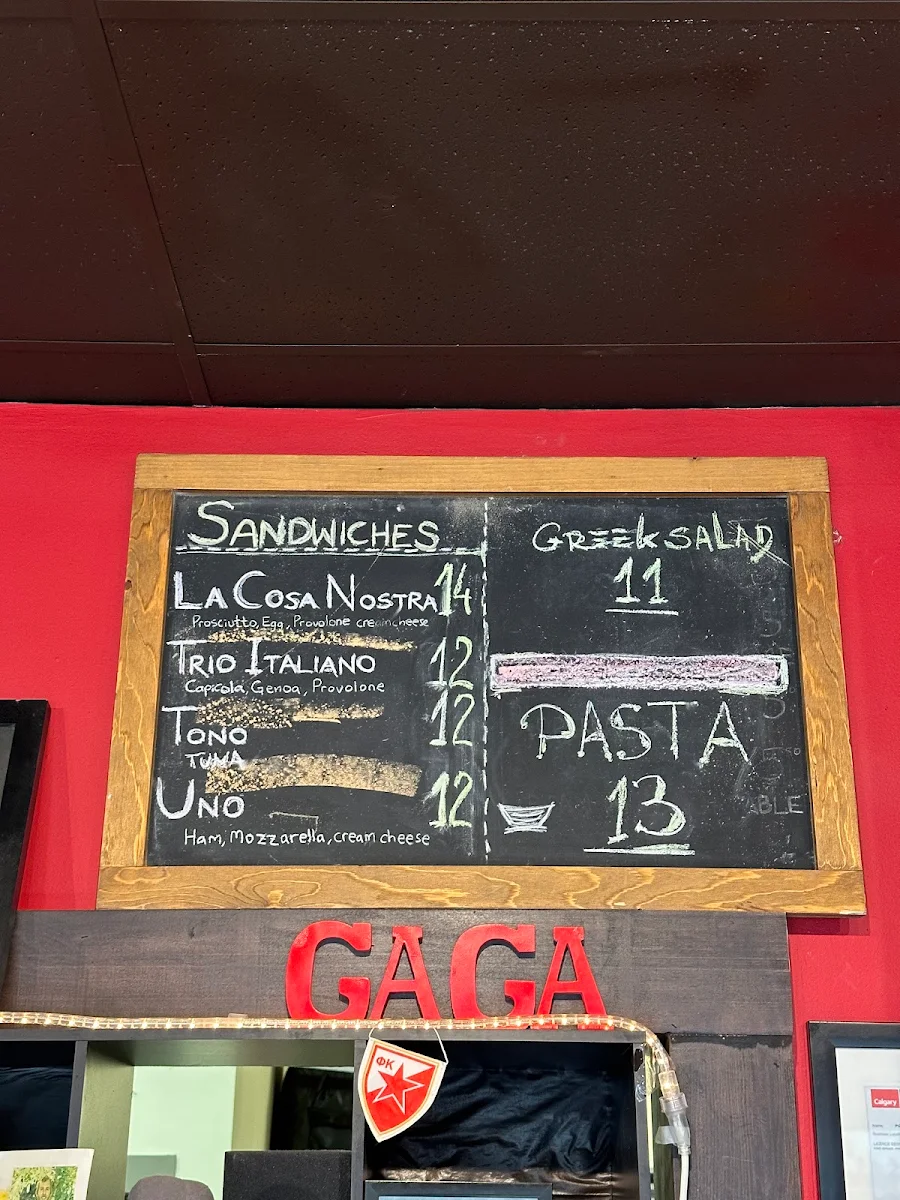 SANDWICHES
LA COSA NOSTRA 14
Prosciutto, Egg, Provolone cream cheese
TRIO ITALIANO 12
Capicola, Genoa, Provolone
TONO 12
TUNA
UNO 12
Ham, Mozzarella, cream cheese
GREEK SALAD
11
PASTA
13
ABLE
GAGA
ФК
Calgary